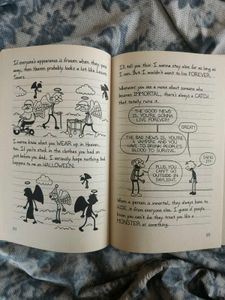 If everyone's appearance is frozen when they pass
away, then Heaven probably looks a lot like Leisure
Towers.
I wanna know what you WEAR up in Heaven,
too. If you're stuck in the clothes you had on
just before you died, I seriously hope nothing bad
happens to me on HALLOWEEN.
I'll tell you this: I wanna stay alive for as long as
I can. But I wouldn't want to live FOREVER.
Whenever you see a movie about someone who
becomes IMMORTAL, there's always a CATCH
that totally ruins it.
THE GOOD NEWS
IS, YOU'RE
IMMORTAL!
GREAT!
THE BAD NEWS IS, YOU'RE
A VAMPIRE AND YOU
HAVE TO DRINK PEOPLE'S
BLOOD TO SURVIVE.
PLUS, YOU
CAN'T GO
OUTSIDE IN
DAYLIGHT.
When a person is immortal, they always have to
HIDE it from everyone else. I guess if people
know you can't die, they treat you like a
MONSTER or something.